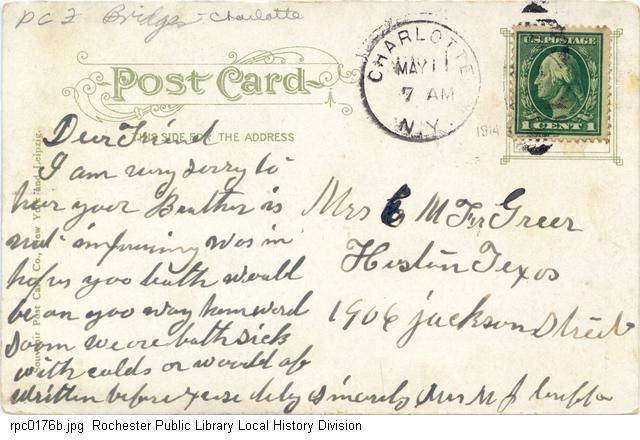 PC 2 Bridges - Charlotte
CHARLOTTE
MAY 11
7 AM
N.Y.
1914
U.S. POSTAGE
1 CENT 1
Post Card
THIS SIDE FOR THE ADDRESS
Souvenir Post Card Co., New York and Leipzig.
Dear Friend
I am very sorry to
hear your Brother is
not improving was in
hopes you both would
be on you way homeword
soom we are both sick
with colds or would of
written before excuse delay sincerely Mrs M J
Mrs E M Greer
Hostin Texos
1906 jackson Street
rpc0176b.jpg Rochester Public Library Local History Division